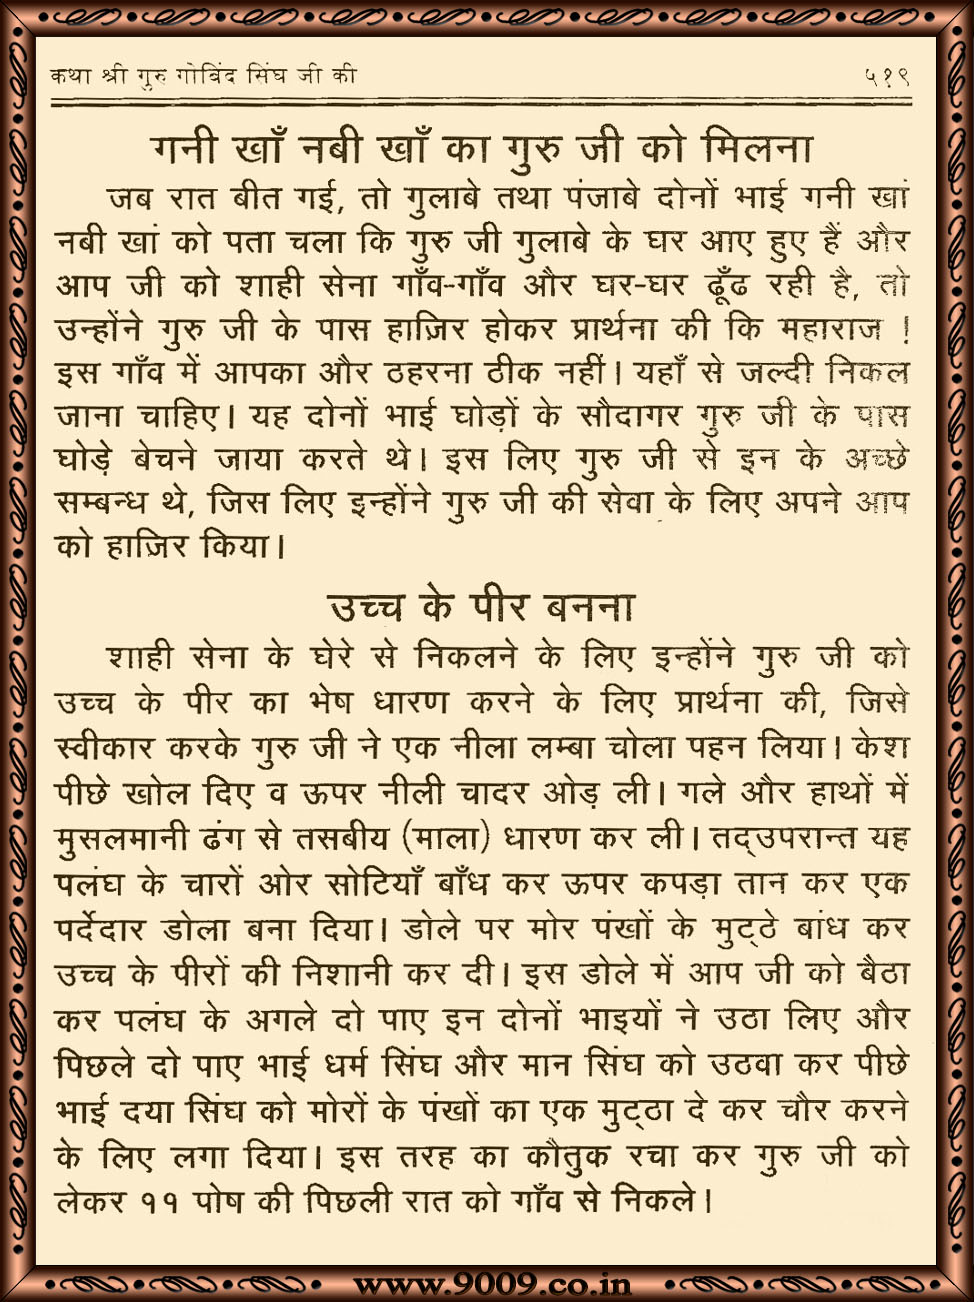 कथा श्री गुरु गोविंद सिंघ जी की ५१९
गनी खाँ नबी खाँ का गुरु जी को मिलना
जब रात बीत गई, तो गुलाबे तथा पंजाबे दोनों भाई गनी खां
नबी खां को पता चला कि गुरु जी गुलाबे के घर आए हुए हैं और
आप जी को शाही सेना गाँव-गाँव और घर-घर ढूँढ रही है, तो
उन्होंने गुरु जी के पास हाज़िर होकर प्रार्थना की कि महाराज !
इस गाँव में आपका और ठहरना ठीक नहीं। यहाँ से जल्दी निकल
जाना चाहिए। यह दोनों भाई घोड़ों के सौदागर गुरु जी के पास
घोड़े बेचने जाया करते थे। इस लिए गुरु जी से इन के अच्छे
सम्बन्ध थे, जिस लिए इन्होंने गुरु जी की सेवा के लिए अपने आप
को हाज़िर किया।
उच्च के पीर बनना
शाही सेना के घेरे से निकलने के लिए इन्होंने गुरु जी को
उच्च के पीर का भेष धारण करने के लिए प्रार्थना की, जिसे
स्वीकार करके गुरु जी ने एक नीला लम्बा चोला पहन लिया। केश
पीछे खोल दिए व ऊपर नीली चादर ओड़ ली। गले और हाथों में
मुसलमानी ढंग से तसबीय (माला) धारण कर ली। तद्उपरान्त यह
पलंघ के चारों ओर सोटियाँ बाँध कर ऊपर कपड़ा तान कर एक
पर्देदार डोला बना दिया। डोले पर मोर पंखों के मुट्ठे बांध कर
उच्च के पीरों की निशानी कर दी। इस डोले में आप जी को बैठा
कर पलंघ के अगले दो पाए इन दोनों भाइयों ने उठा लिए और
पिछले दो पाए भाई धर्म सिंघ और मान सिंघ को उठवा कर पीछे
भाई दया सिंघ को मोरों के पंखों का एक मुट्ठा दे कर चौर करने
के लिए लगा दिया। इस तरह का कौतुक रचा कर गुरु जी को
लेकर ११ पोष की पिछली रात को गाँव से निकले।
www.9009.co.in